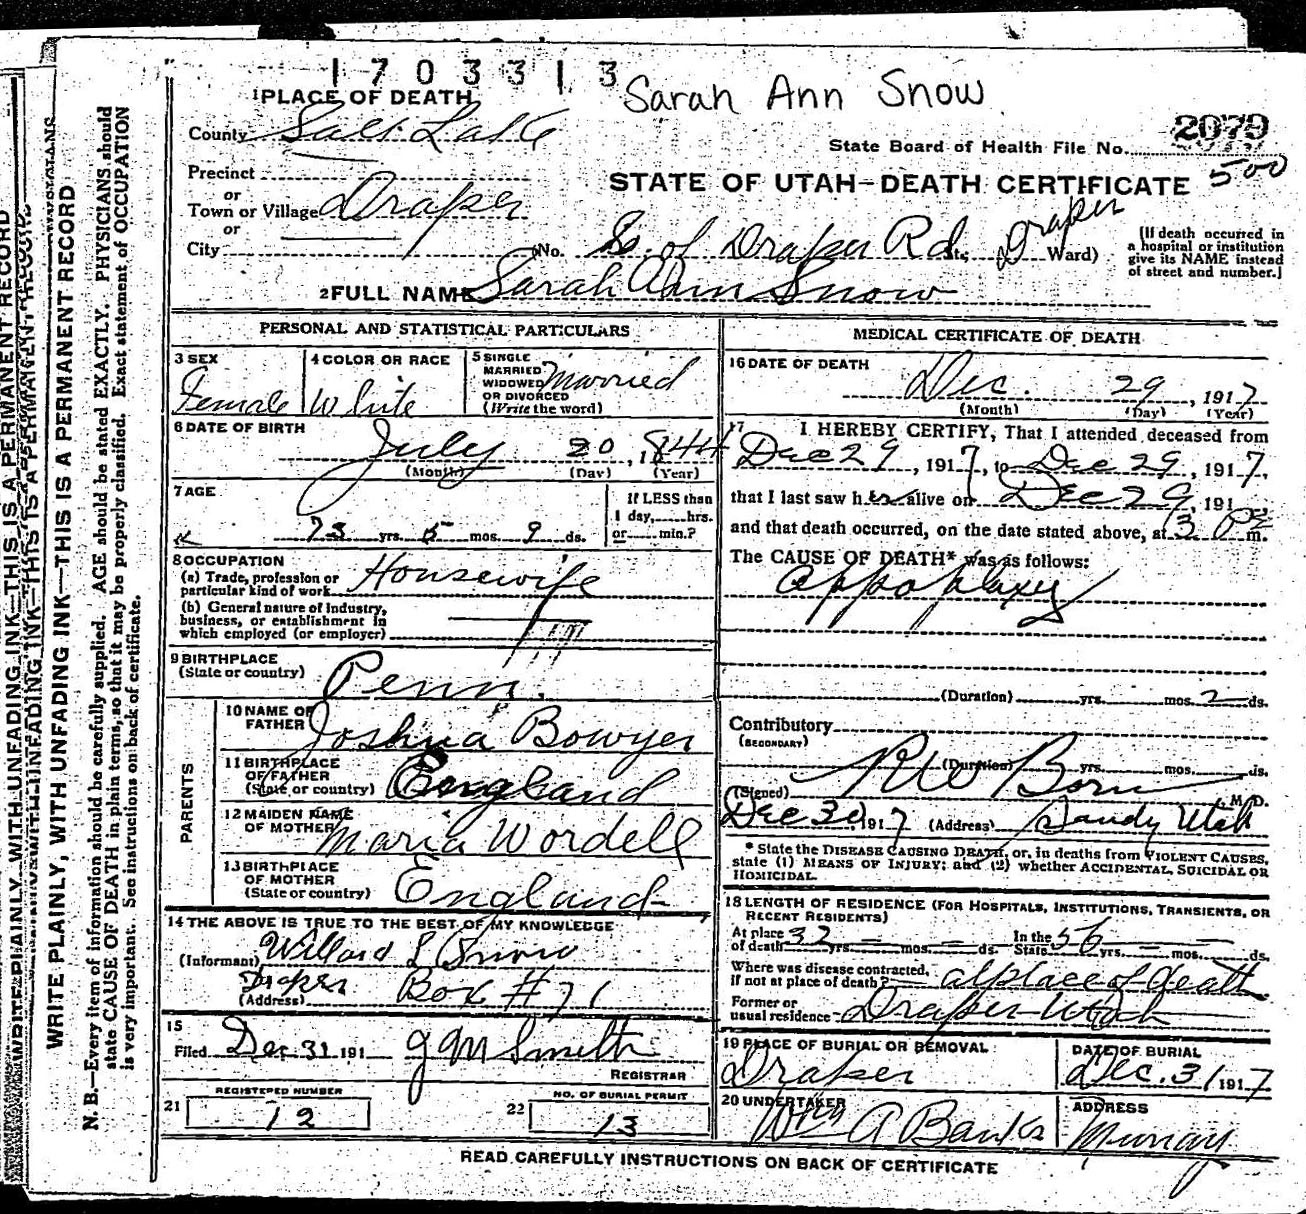 1703313
Sarah Ann Snow
1 PLACE OF DEATH
County Salt Lake
2079
State Board of Health File No.
500
Precinct
or
Town or Village Draper
or
City
STATE OF UTAH-DEATH CERTIFICATE
(No. So. of Draper Rd. St; Draper Ward)
(If death occurred in
a hospital or institution
give its NAME instead
of street and number.)
2 FULL NAME Sarah Ann Snow
PERSONAL AND STATISTICAL PARTICULARS
3 SEX
Female
4 COLOR OR RACE
White
5 SINGLE
MARRIED
WIDOWED
OR DIVORCED
(Write the word)
Married
6 DATE OF BIRTH
July 20, 1844
(Month) (Day) (Year)
7 AGE
73 yrs. 5 mos. 9 ds.
If LESS than
1 day,.....hrs.
or.....min.?
8 OCCUPATION
(a) Trade, profession or
particular kind of work Housewife
(b) General nature of Industry,
business, or establishment in
which employed (or employer)
9 BIRTHPLACE
(State or country) Penn.
PARENTS
10 NAME OF
FATHER Joshua Bowyer
11 BIRTHPLACE
OF FATHER
(State or country) England
12 MAIDEN NAME
OF MOTHER Maria Wordell
13 BIRTHPLACE
OF MOTHER
(State or country) England
14 THE ABOVE IS TRUE TO THE BEST OF MY KNOWLEDGE
(Informant) Willard L Snow
(Address) Draper Box #71
15
Filed Dec 31, 191 J M Smith
REGISTRAR
REGISTERED NUMBER
21 12
NO. OF BURIAL PERMIT
22 13
MEDICAL CERTIFICATE OF DEATH
16 DATE OF DEATH
Dec. 29, 1917
(Month) (Day) (Year)
17 I HEREBY CERTIFY, That I attended deceased from
Dec 29, 1917, to Dec 29, 1917,
that I last saw her alive on Dec 29, 191
and that death occurred, on the date stated above, at 3 P m.
The CAUSE OF DEATH* was as follows:
appoplaxy
(Duration) yrs. mos. 2 ds.
Contributory
(SECONDARY)
(Duration) yrs. mos. ds.
(Signed) R W Born M. D.
Dec 30, 1917 (Address) Sandy Utah
* State the DISEASE CAUSING DEATH, or, in deaths from VIOLENT CAUSES,
state (1) MEANS OF INJURY; and (2) whether ACCIDENTAL, SUICIDAL OR
HOMICIDAL.
18 LENGTH OF RESIDENCE (FOR HOSPITALS, INSTITUTIONS, TRANSIENTS, OR
RECENT RESIDENTS)
At place
of death 32 yrs. mos. ds. In the
State 56 yrs. mos. ds.
Where was disease contracted,
if not at place of death? at place of death
Former or
usual residence Draper Utah
19 PLACE OF BURIAL OR REMOVAL
Draper
DATE OF BURIAL
Dec. 31 1917
20 UNDERTAKER
Wm A Banks
ADDRESS
Murray
READ CAREFULLY INSTRUCTIONS ON BACK OF CERTIFICATE
WRITE PLAINLY, WITH UNFADING INK—THIS IS A PERMANENT RECORD
N. B.—Every item of information should be carefully supplied. AGE should be stated EXACTLY. PHYSICIANS should
state CAUSE OF DEATH in plain terms, so that it may be properly classified. Exact statement of OCCUPATION
is very important. See instructions on back of certificate.